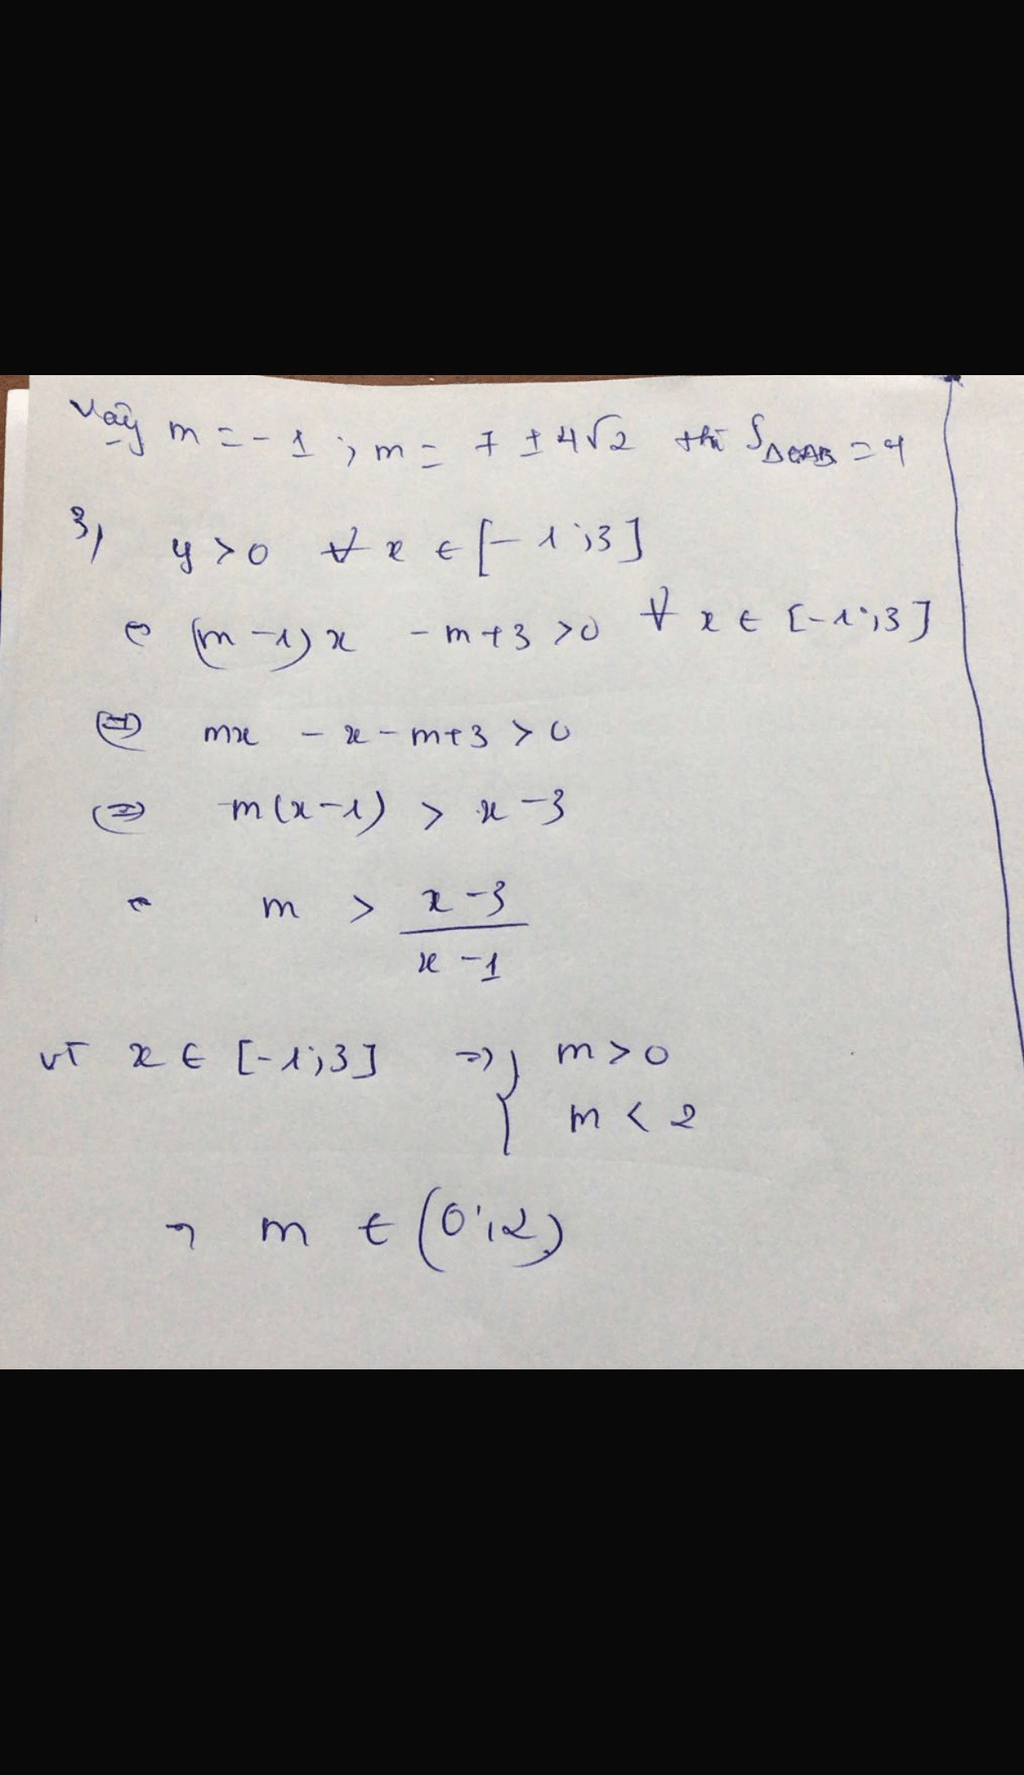 Vậy m = -1 ; m = 7 ± 4√2 thì S△OAB = 4
3) y > 0 ∀ x ∈ [-1;3]
⇔ (m-1)x - m+3 > 0 ∀ x ∈ [-1;3]
⇔ mx - x - m+3 > 0
⇔ m(x-1) > x-3
⇔ m > x-3 / x-1
vì x ∈ [-1;3] => { m > 0
m < 2
=> m ∈ (0;2)